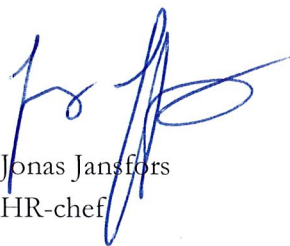 Jonas Jansfors
HR-chef